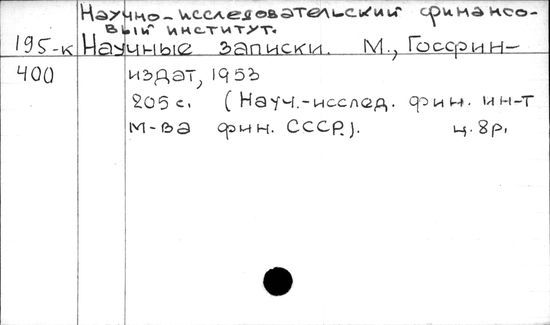 Научно-исследовательский финансо-
вый институт.
195-к Научные записки. М., Госфин-
400 издат, 1953
205 с. (Науч.-исслед. фин. ин-т
м-ва фин. СССР). ц. 8 р.